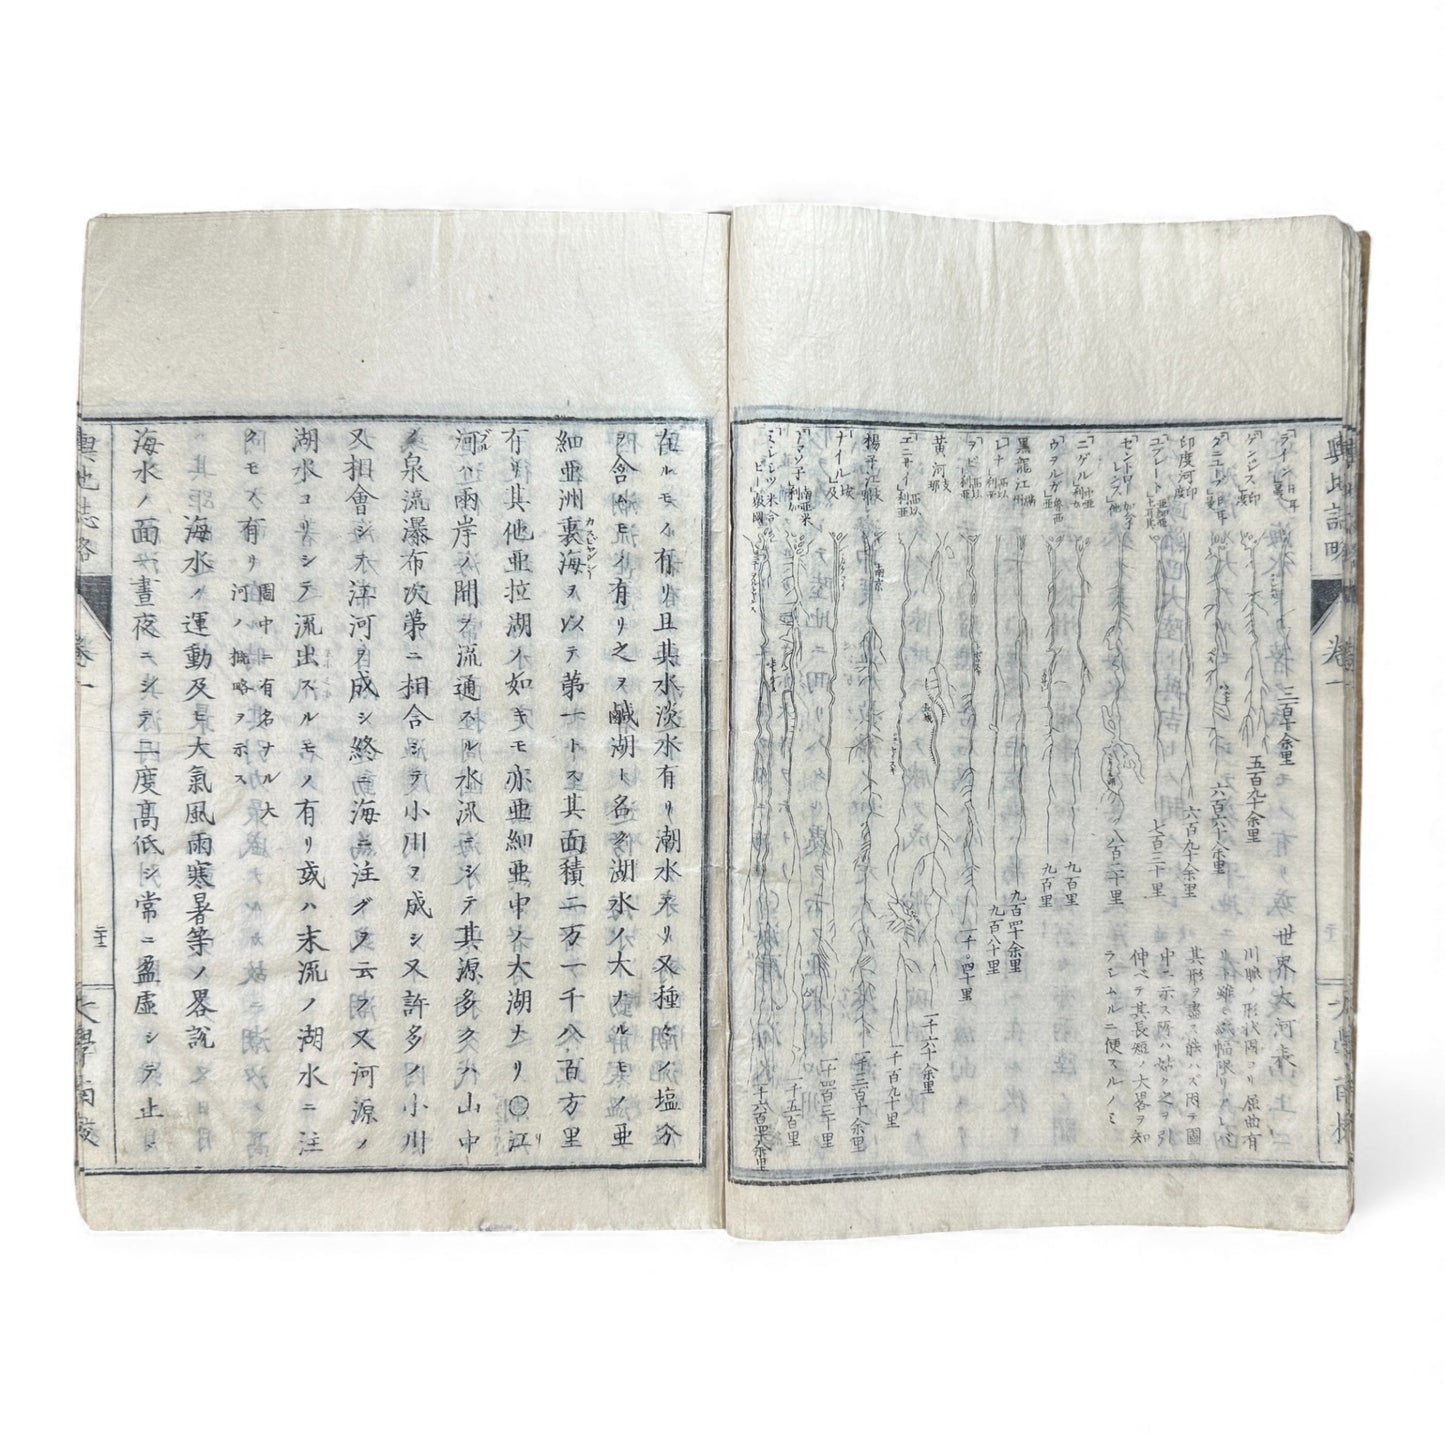 輿地誌略
卷一
大學南校
世界大河表
川脈ノ形状固ヨリ屈曲有
リト雖𪜈紙幅限リアレハ
其形ヲ盡ス能ハズ因テ圖
中ニ示ス所ハ姑ク之ヲ引
伸ベテ其長短ノ大畧ヲ知
ラシムルニ便スルノミ
ライン
三百余里
ゲンジス 印度
五百九十余里
ダニユーブ
六百六十余里
印度河 印度
六百九十余里
七百三十里
セントローレンス
八百二十里
ニゲル
九百里
ウヲルガ 魯西
九百里
黒龍江 満州
九百四十余里
レナ 西以利亜
九百八十里
ヲビ 西以利亜
一千〇四十里
黄河 支那
一千六十余里
エニサイ 西以利亜
一千百九十里
揚子江 支那
南京
一千三百十余里
ナイル 埃及
一千四百二十里
アマゾ子 南亜米利加
一千五百里
ミスシシツピー 米合衆國
一千六百四十余里
在ルモノ有リ且其水淡水有リ潮水有リ又種々ノ塩分
ヲ含ムモノ有リ之ヲ鹹湖ト名ク湖水ノ大ナルモノ亜
細亜洲裏海ヲ以テ第一トス其面積二万一千八百方里
カスピヤンシー
有リ其他亜拉湖ノ如キモ亦亜細亜中ノ大湖ナリ〇江
河ハ両岸ノ間ヲ流通スル水流ニシテ其源多クハ山中
ノ泉流瀑布次第ニ相合シテ小川ヲ成シ又許多ノ小川
又相會シテ洋河ヲ成シ終ニ海ニ注グヲ云フ又河源ノ
湖水ヨリシテ流出スルモノ有リ或ハ末流ノ湖水ニ注
クモノ有リ 圖中ニ有名ナル大
河ノ概略ヲ示ス
海水ノ運動及ヒ大氣風雨寒暑等ノ畧説
海水ノ面ハ晝夜ニシテ再度高低シ常ニ盈虚シテ止
輿地誌略
卷一
二十二
大學南校